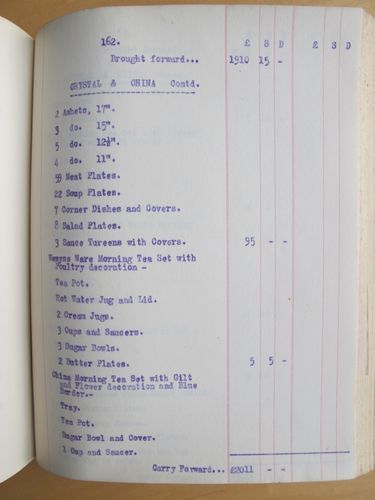 162.
£ S D £ S D
Brought forward... 1910 15 -
CRYSTAL & CHINA Contd.
2 Ashets, 17".
3 do. 15".
5 do. 12½".
4 do. 11".
59 Meat Plates.
22 Soup Plates.
7 Corner Dishes and Covers.
8 Salad Plates.
3 Sauce Tureens with Covers. 95 - -
Wemyss Ware Morning Tea Set with
Poultry decoration -
Tea Pot.
Hot Water Jug and Lid.
2 Cream Jugs.
3 Cups and Saucers.
3 Sugar Bowls.
2 Butter Plates. 5 5 -
China Morning Tea Set with Gilt
and Flower decoration and Blue
Border.-
Tray.
Tea Pot.
Sugar Bowl and Cover.
1 Cup and Saucer.
Carry Forward... £2011 - -